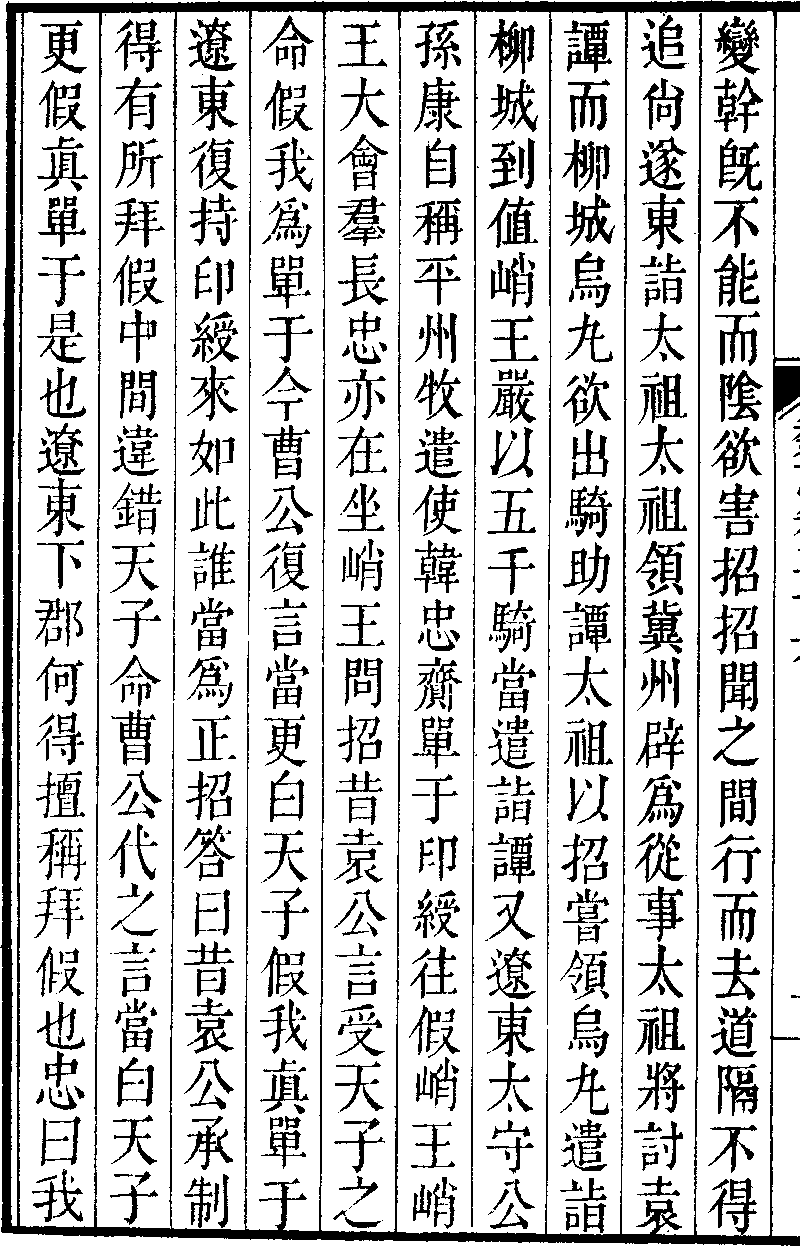 變幹旣不能而陰欲害招招聞之間行而去道隔不得
追尙遂東詣太祖太祖領冀州辟爲從事太祖將討袁
譚而柳城烏丸欲出騎助譚太祖以招嘗領烏丸遣詣
柳城到值峭王嚴以五千騎當遣詣譚又遼東太守公
孫康自稱平州牧遣使韓忠齎單于印綬往假峭王峭
王大會羣長忠亦在坐峭王問招昔袁公言受天子之
命假我爲單于今曹公復言當更白天子假我眞單于
遼東復持印綬來如此誰當爲正招答曰昔袁公承制
得有所拜假中間違錯天子命曹公代之言當白天子
更假眞單于是也遼東下郡何得擅稱拜假也忠曰我